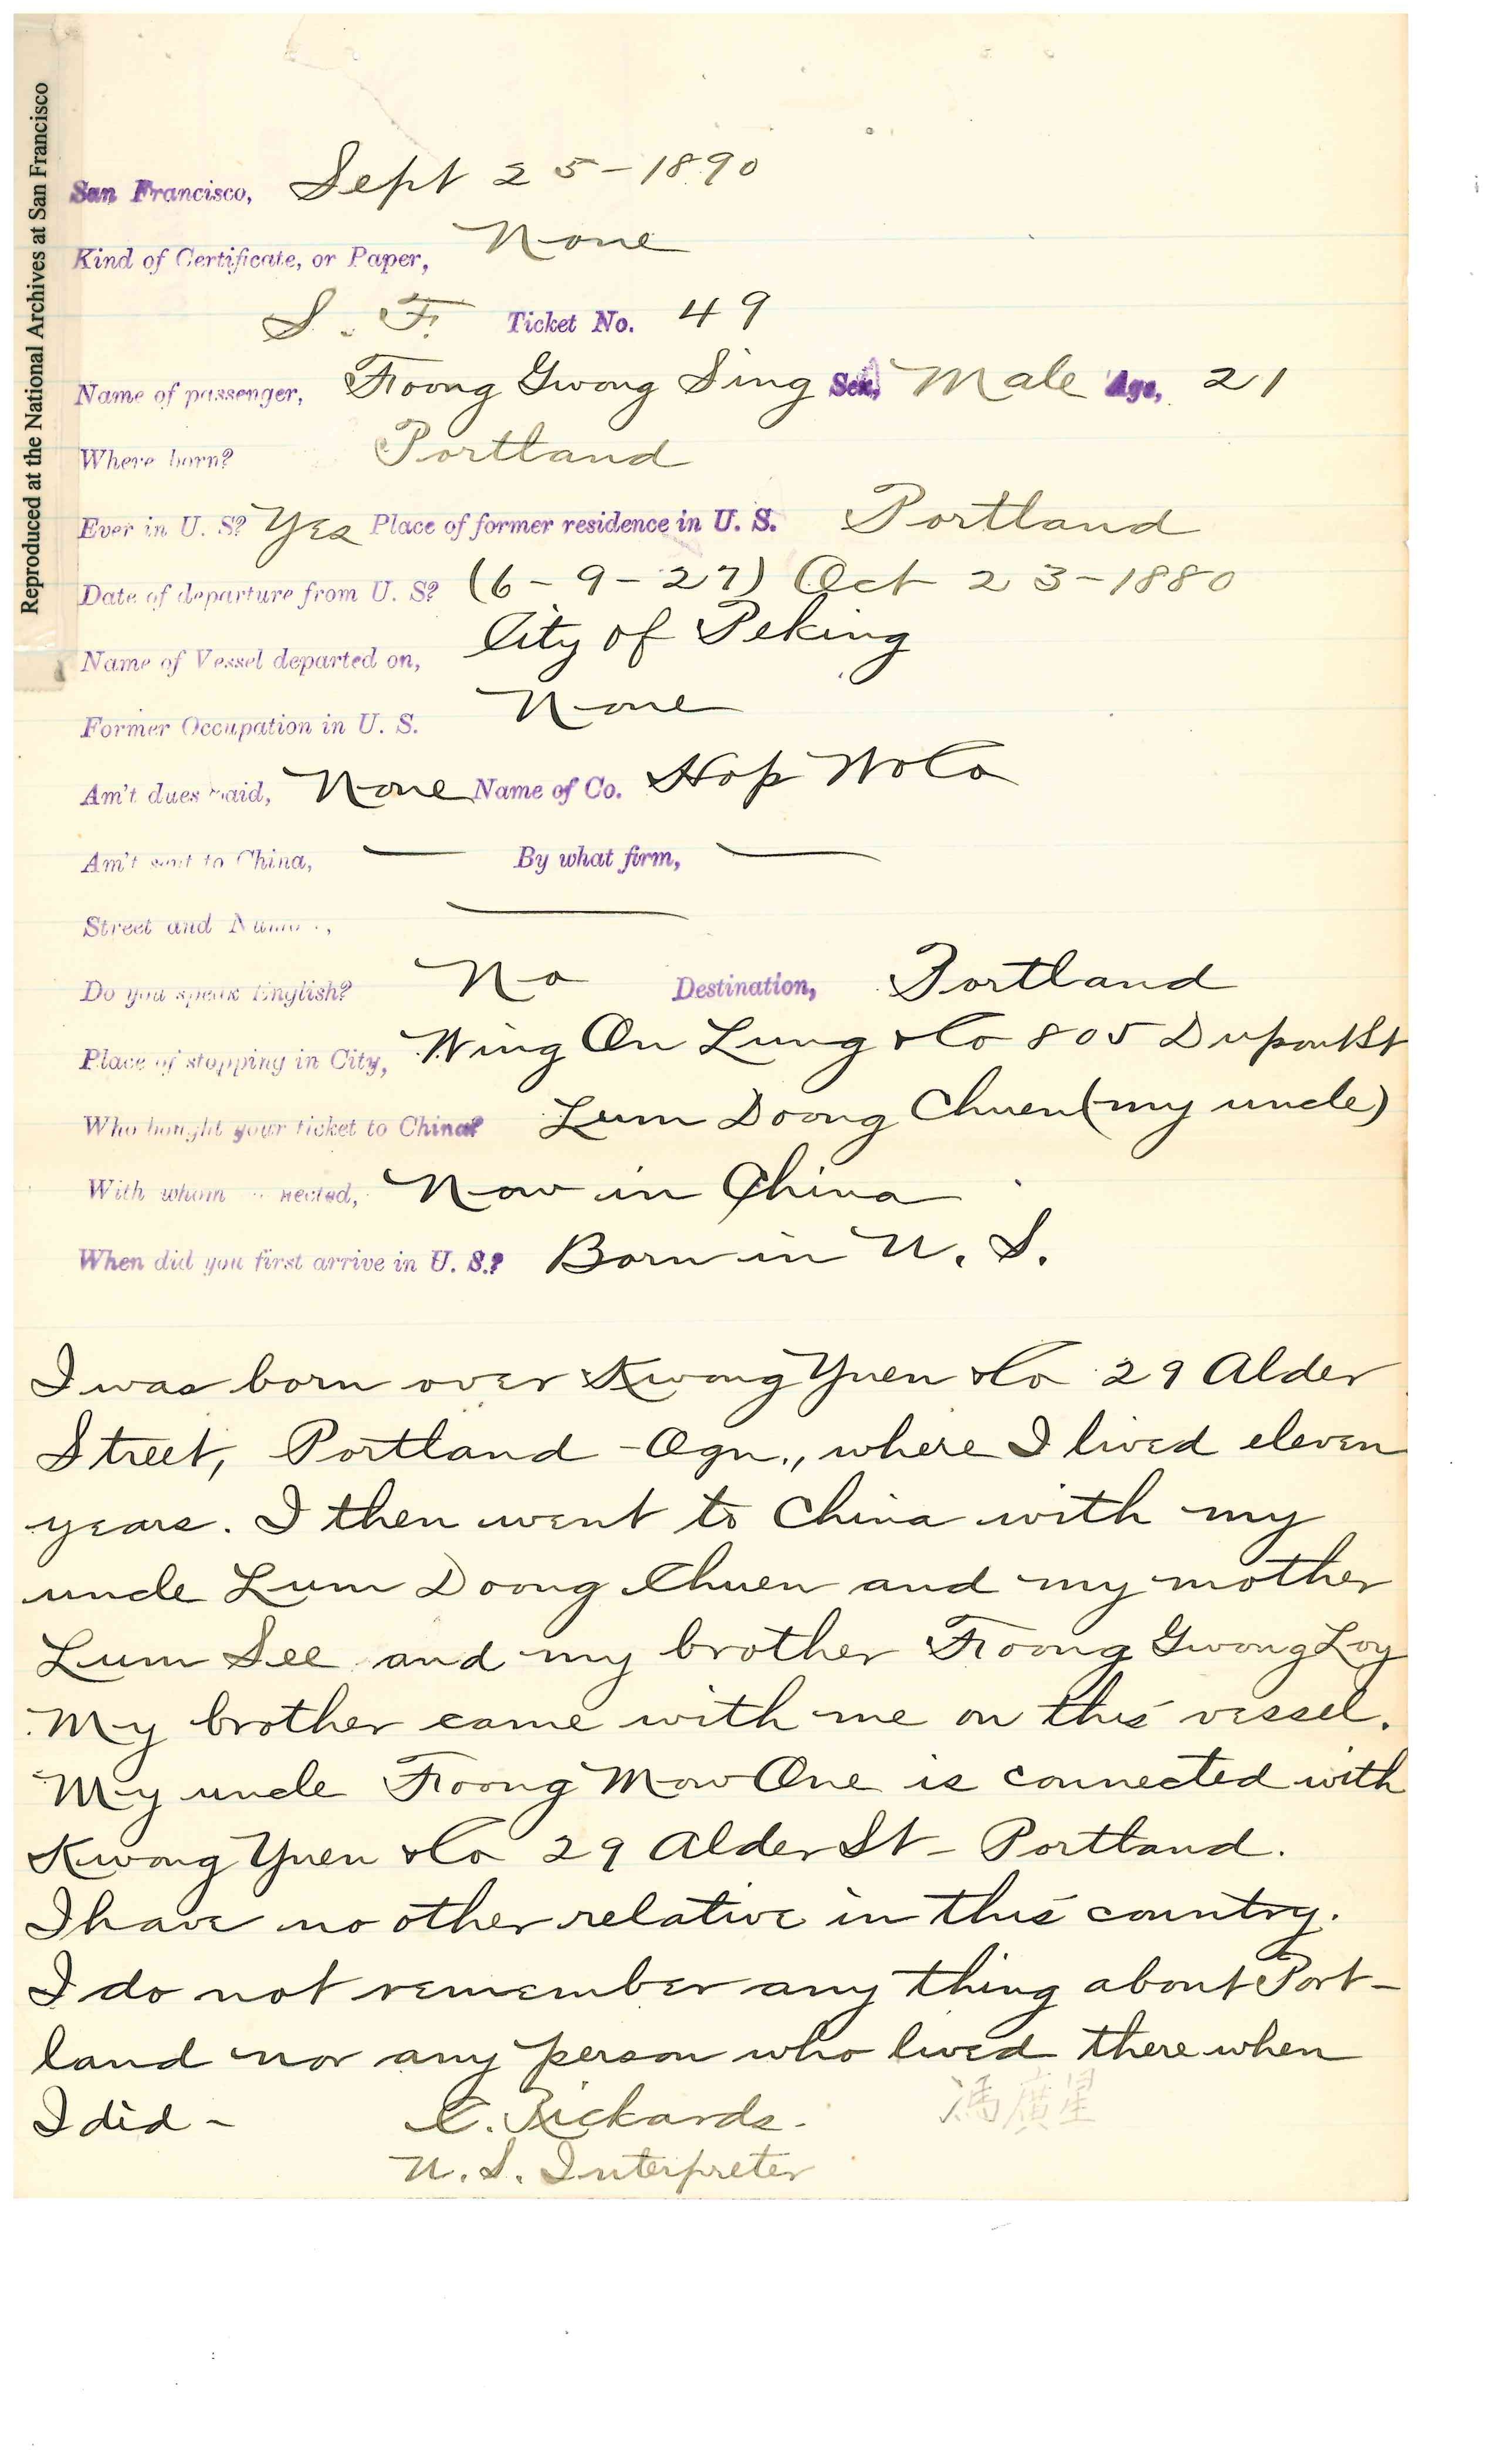 Reproduced at the National Archives at San Francisco
San Francisco, Sept 25-1890
Kind of Certificate, or Paper, None
S. F. Ticket No. 49
Name of passenger, Foong Gwong Sing Sex, Male Age, 21
Where born? Portland
Ever in U. S? Yes Place of former residence in U. S. Portland
Date of departure from U. S? (6-9-27) Oct 23-1880
Name of Vessel departed on, City of Peking
Former Occupation in U. S. None
Am't dues paid, None Name of Co. Hop Wo Co
Am't sent to China, — By what firm, —
Street and Number, —
Do you speak English? No Destination, Portland
Place of stopping in City, Wing On Lung & Co 805 Dupont St
Who bought your ticket to China? Lum Doong Chuen (my uncle)
With whom connected, Now in China
When did you first arrive in U. S.? Born in U. S.
I was born over Kwong Yuen & Co 29 Alder
Street, Portland - Ogn., where I lived eleven
years. I then went to China with my
uncle Lum Doong Chuen and my mother
Lum See and my brother Foong Gwong Loy
My brother came with me on this vessel.
My uncle Foong Mow One is connected with
Kwong Yuen & Co 29 Alder St - Portland.
I have no other relative in this country.
I do not remember any thing about Port-
land nor any person who lived there when
I did - C. Rickards. 馮廣星
U. S. Interpreter